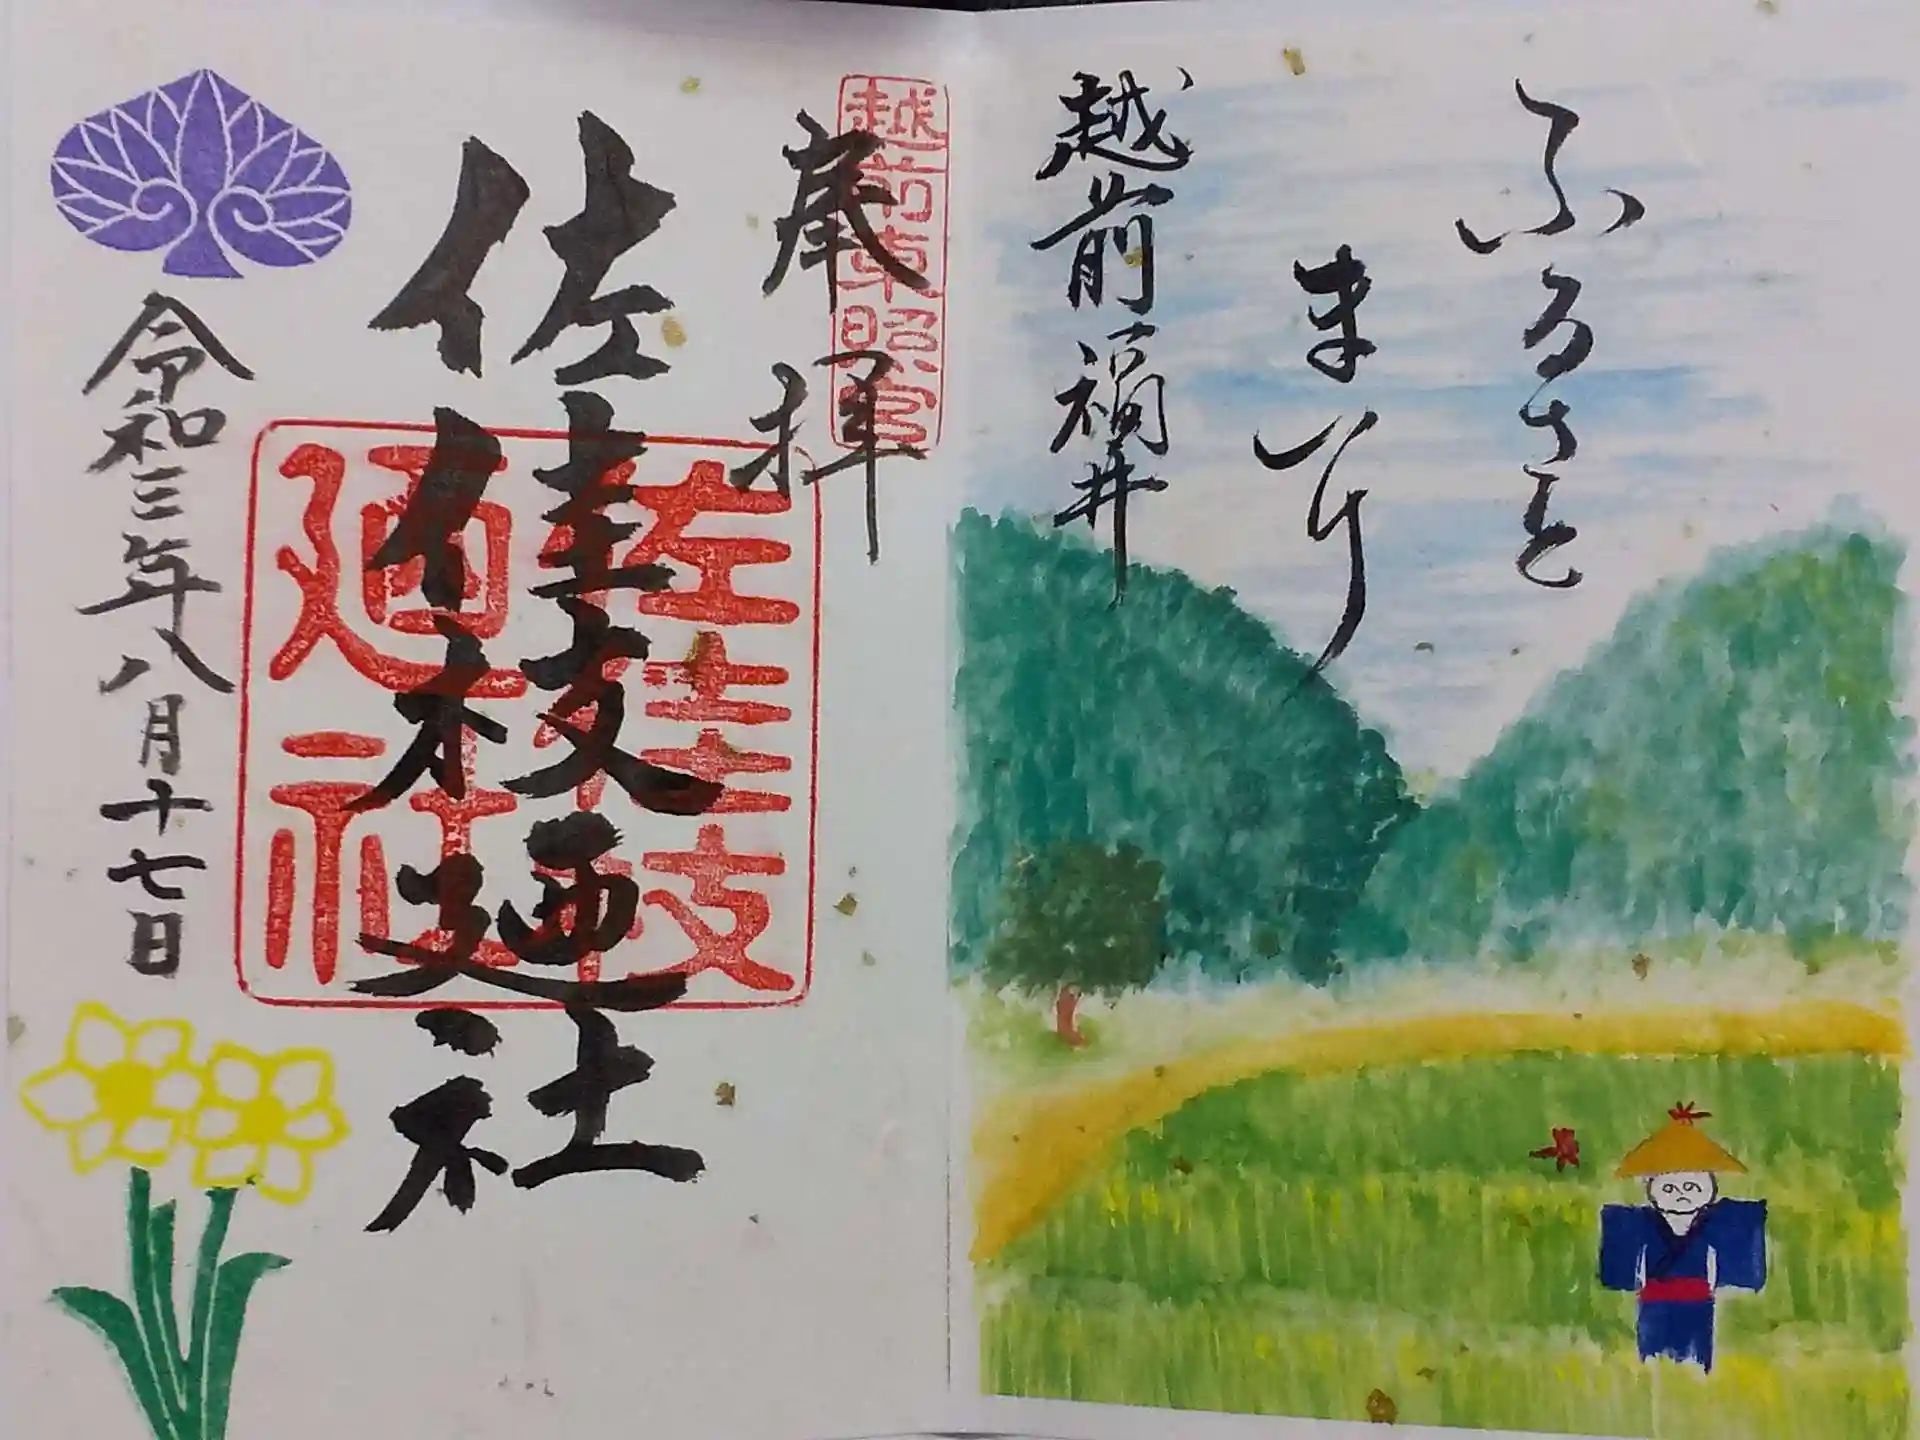 ふるさと
まつり
越前福井
奉拝
越前東照宮
佐佳枝廼社
佐佳枝廼社
令和三年八月十七日